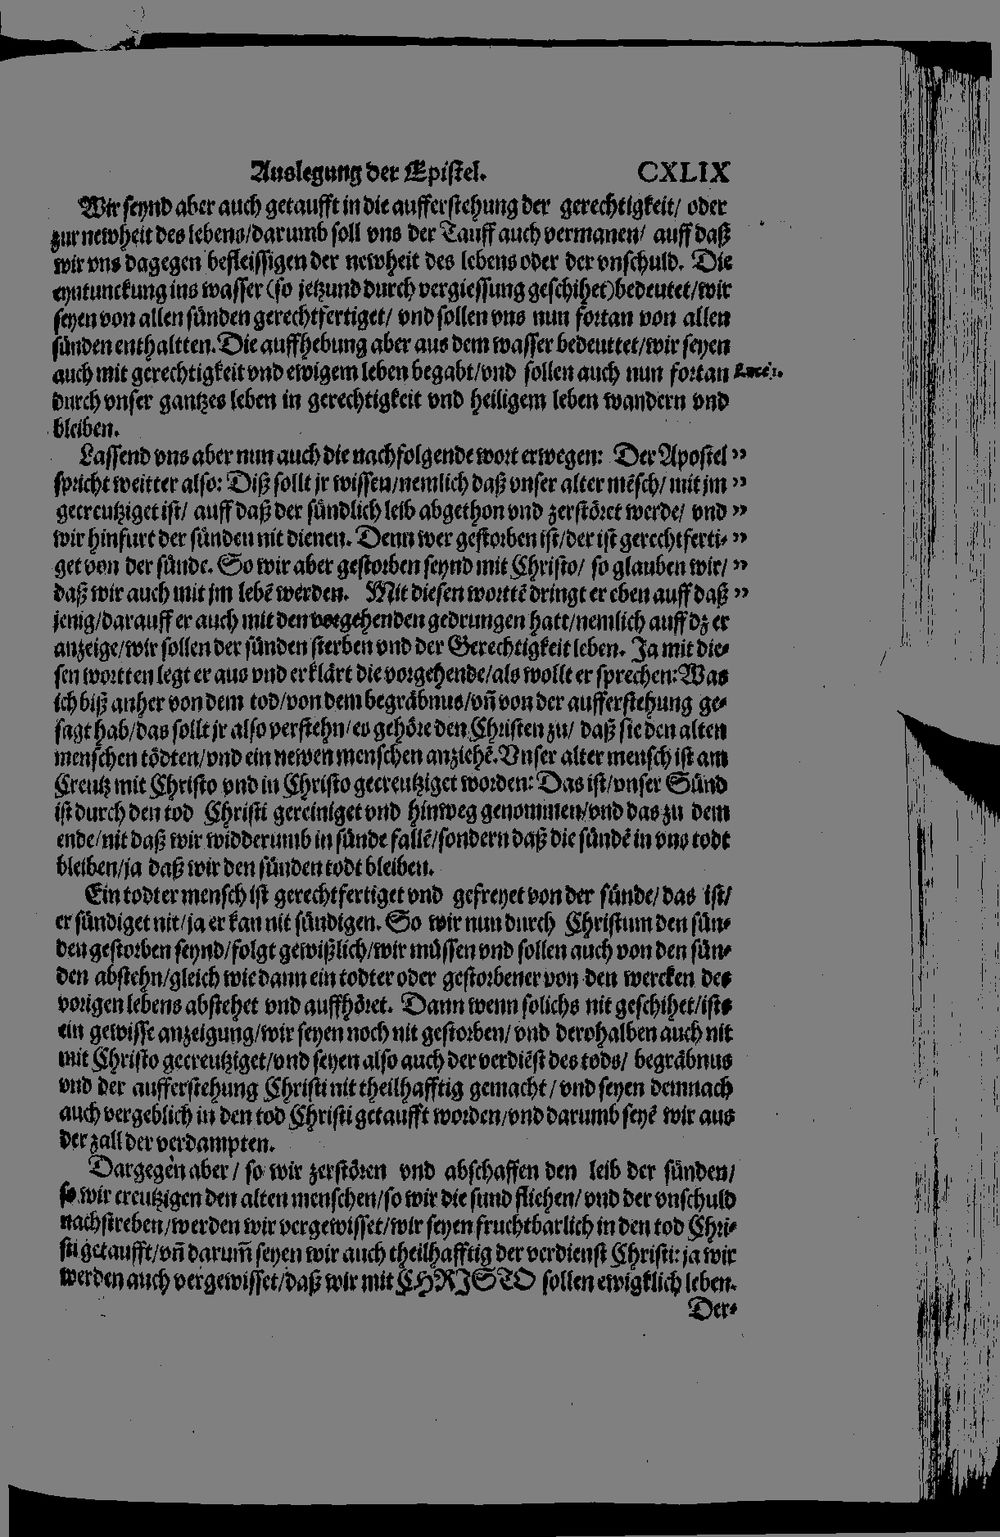 Auslegung der Epistel. CXLIX
Wir seynd aber auch getaufft in die aufferstehung der gerechtigkeit/ oder
zur newheit des lebens/darumb soll vns der Tauff auch vermanen/ auff daß
wir vns dagegen befleissigen der newheit des lebens oder der vnschuld. Die
eyntunckung ins wasser (so jetzund durch vergiessung geschihet) bedeutet/wir
seyen von allen sünden gerechtfertiget/ vnd sollen vns nun fortan von allen
sünden enthaltten. Die auffhebung aber aus dem wasser bedeuttet/wir seyen
auch mit gerechtigkeit vnd ewigem leben begabt/vnd sollen auch nun fortan Luce 1.
durch vnser gantzes leben in gerechtigkeit vnd heiligem leben wandern vnd
bleiben.
Lassend vns aber nun auch die nachfolgende wort erwegen: Der Apostel ”
spricht weitter also: Diß sollt jr wissen/nemlich daß vnser alter mēsch/ mit jm ”
gecreutziget ist/ auff daß der sündlich leib abgethon vnd zerstöret werde/ vnd ”
wir hinfurt der sünden nit dienen. Denn wer gestorben ist/der ist gerechtferti- ”
get von der sünde. So wir aber gestorben seynd mit Christo/ so glauben wir/ ”
daß wir auch mit jm lebē werden. Mit diesen worttē dringt er eben auff daß ”
jenig/darauff er auch mit den vorgehenden gedrungen hatt/nemlich auff dz er
anzeige/wir sollen der sünden sterben vnd der Gerechtigkeit leben. Ja mit die-
sen wortten legt er aus vnd erklärt die vorgehende/als wollt er sprechen: Was
ich biß anher von dem tod/von dem begräbnus/vn̄ von der aufferstehung ge-
sagt hab/das sollt jr also verstehn/es gehöre den Christen zu/ daß sie den alten
menschen tödten/vnd ein newen menschen anziehē. Vnser alter mensch ist am
Creutz mit Christo vnd in Christo gecreutziget worden: Das ist/vnser Sünd
ist durch den tod Christi gereiniget vnd hinweg genommen/vnd das zu dem
ende/nit daß wir widderumb in sünde fallē/sondern daß die sündē in vns todt
bleiben/ja daß wir den sünden todt bleiben.
Ein todter mensch ist gerechtfertiget vnd gefreyet von der sünde/das ist/
er sündiget nit/ja er kan nit sündigen. So wir nun durch Christum den sün-
den gestorben seynd/folgt gewißlich/wir müssen vnd sollen auch von den sün-
den abstehn/gleich wie dann ein todter oder gestorbener von den wercken des
vorigen lebens abstehet vnd auffhöret. Dann wenn solichs nit geschihet/ists
ein gewisse anzeigung/wir seyen noch nit gestorben/ vnd derohalben auch nit
mit Christo gecreutziget/vnd seyen also auch der verdiēst des tods/ begräbnus
vnd der aufferstehung Christi nit theilhafftig gemacht/ vnd seyen demnach
auch vergeblich in den tod Christi getaufft worden/vnd darumb seyē wir aus
der zall der verdampten.
Dargegen aber/ so wir zerstören vnd abschaffen den leib der sünden/
so wir creutzigen den alten menschen/so wir die sünd fliehen/ vnd der vnschuld
nachstreben/werden wir vergewisset/wir seyen fruchtbarlich in den tod Chri-
sti getaufft/vn̄ darum̄ seyen wir auch theilhafftig der verdienst Christi: ja wir
werden auch vergewisset/daß wir mit CHRISTO sollen ewigklich leben.
Der-